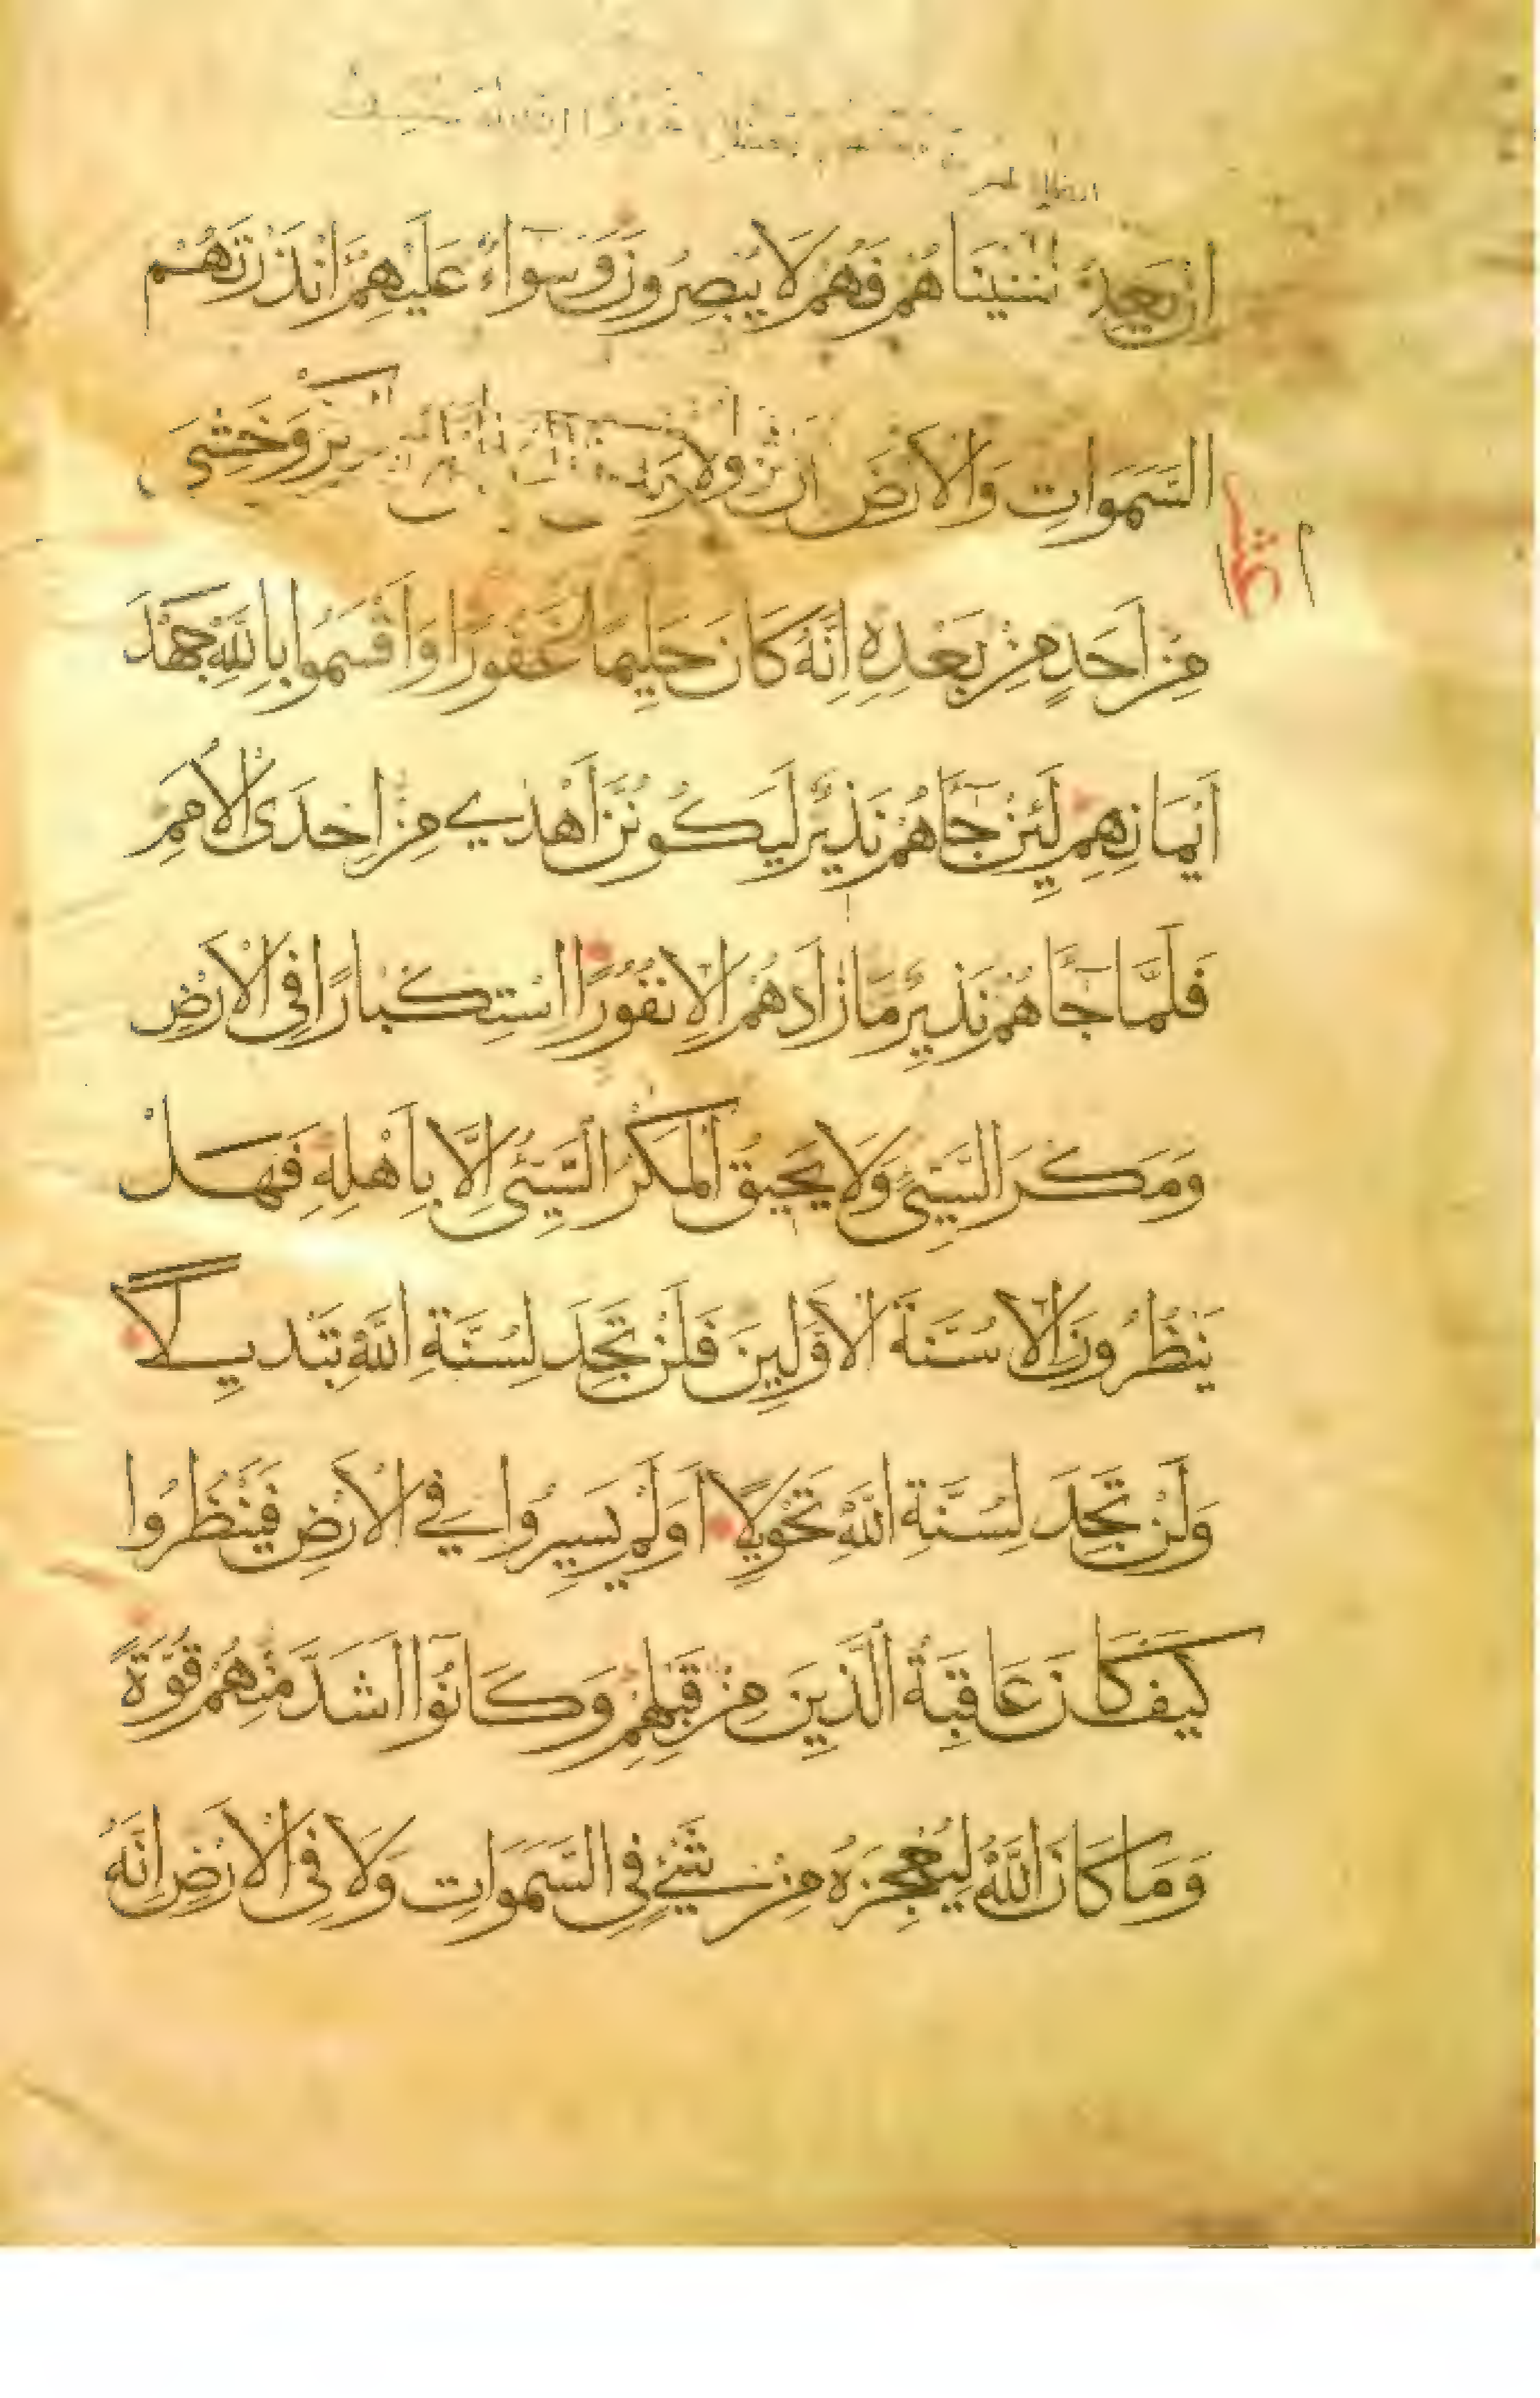 ان بعد نشيناهم فهم لا يبصرون وسواء عليهم انذرتهم
السموات والارض ان ولا وخشي
مِن اَحَدٍ مِن بَعْدِهِ اِنَّهُ كَانَ حَلِيمًا غَفُورًا وَاَقْسَمُوا بِاللَّهِ جَهْدَ
اَيْمَانِهِم لَئِن جَاَهُم نَذِيرٌ لَيَكُونُنَّ اَهْدَي مِن اِحْدَى الْاُمَمِ
فَلَمَّا جَاَهُم نَذِيرٌ مَا زَادَهُم اِلا نُفُورًا اسْتِكْبَارًا فِى الْاَرْضِ
وَمَكْرَ السَّيِّىِٔ وَلَا يَحِيقُ الْمَكْرُ السَّيِّىُٔ اِلَّا بِاَهْلِهِ فَهَلْ
يَنْظُرُونَ اِلا سُنَّةَ الْاَوَّلِينَ فَلَنْ تَجِدَ لِسُنَّةِ اللَّهِ تَبْدِيلًا
وَلَنْ تَجِدَ لِسُنَّةِ اللَّهِ تَحْوِيلًا اَوَلَمْ يَسِيرُوا فِي الْاَرْضِ فَيَنْظُرُوا
كَيْفَ كَانَ عَاقِبَةُ الَّذِينَ مِنْ قَبْلِهِم وَكَانُوا اَشَدَّ مِنْهُم قُوَّةً
وَمَا كَانَ اللَّهُ لِيُعْجِزَهُ مِنْ شَيْءٍ فِى السَّمَوَاتِ وَلَا فِى الْاَرْضِ اِنَّهُ